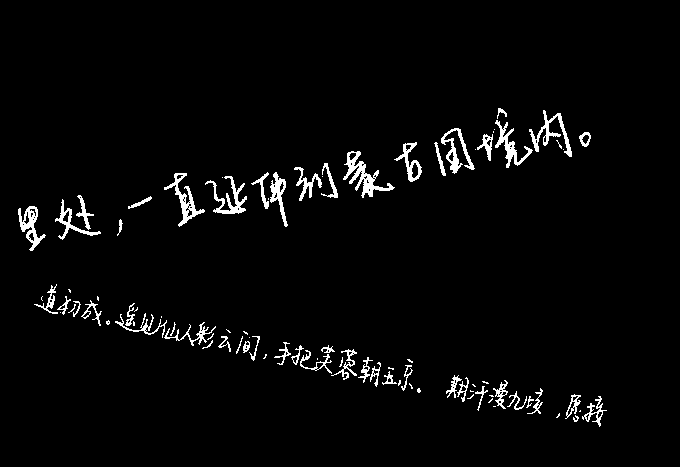 里处,一直延伸到蒙古国境内。
道初成。遥见仙人彩云间,手把芙蓉朝玉京。 期汗漫九垓,愿接